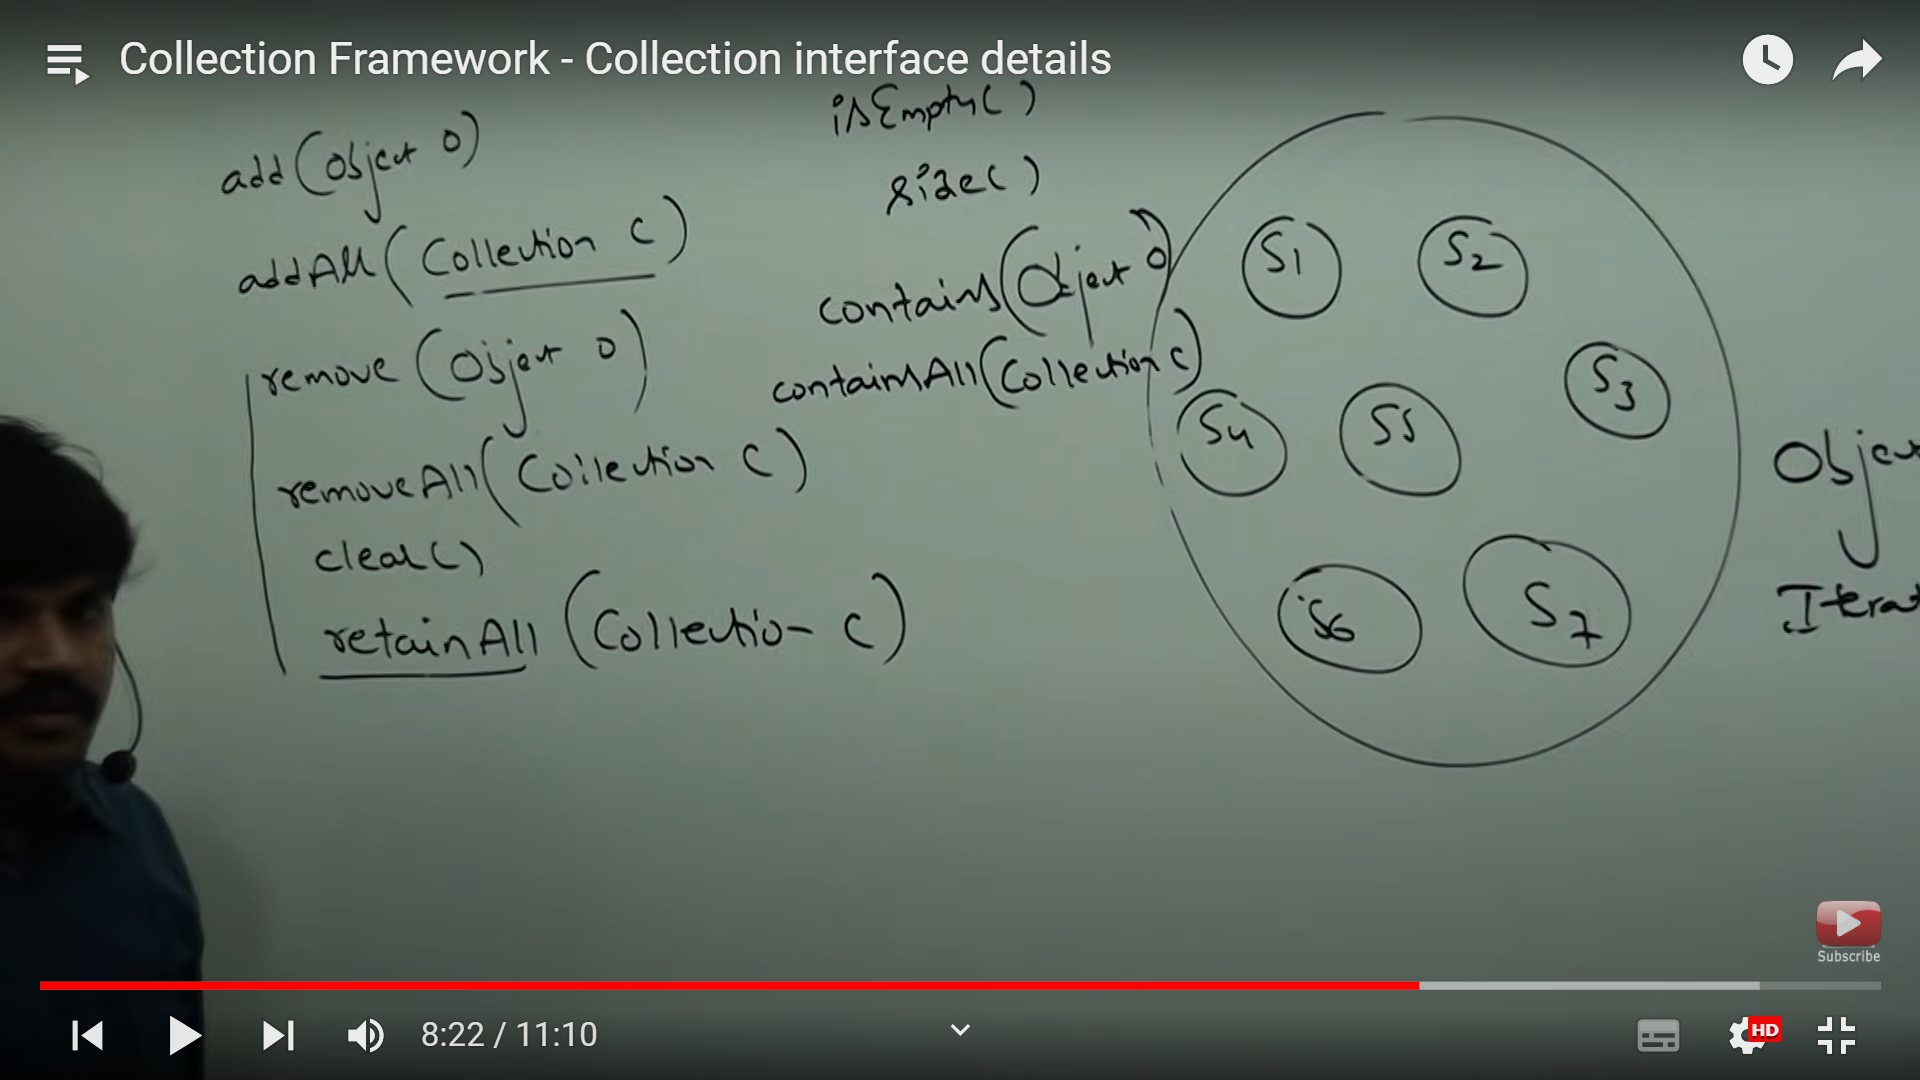 Collection Framework - Collection interface details
add(Object O)
addAll(Collection C)
remove(Object O)
removeAll(Collection C)
clear()
retainAll(Collection C)
isEmpty()
size()
contains(Object O)
containsAll(Collection C)
S1
S2
S3
S4
S5
S6
S7
Objec
Iterat
Subscribe
8:22 / 11:10
HD